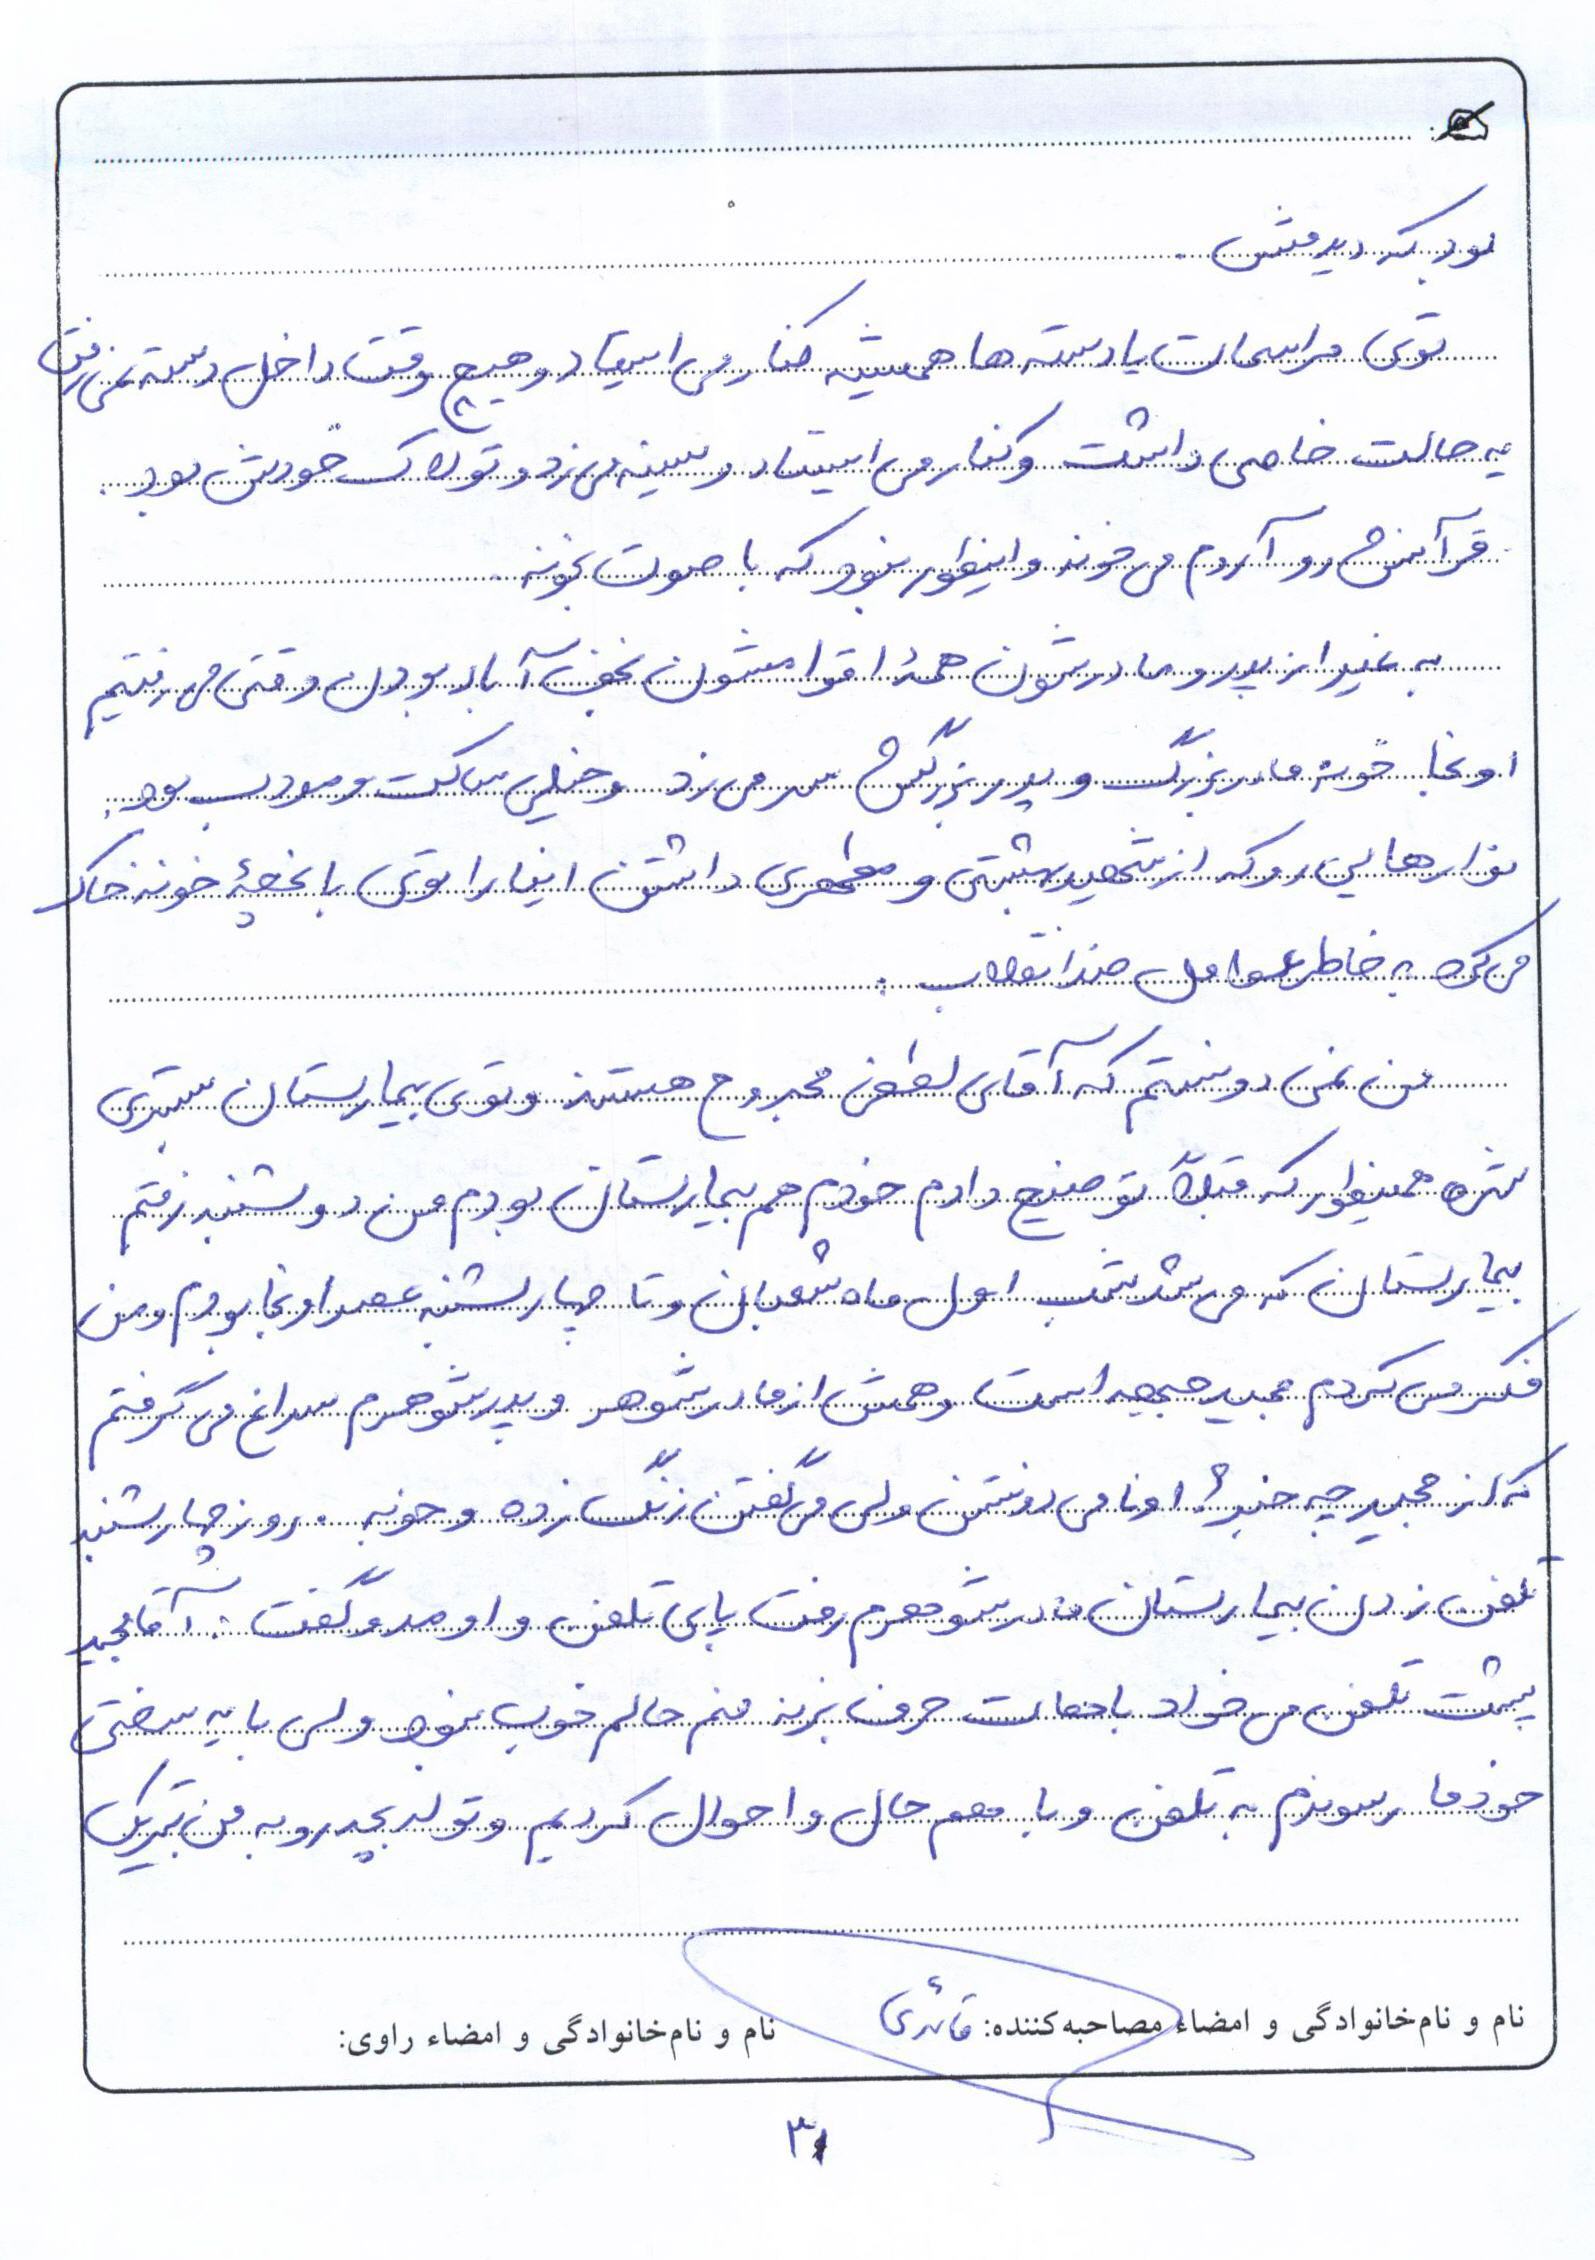 بود که دیدمش.
توی مراسمات یا دسته ها همیشه کنار می ایستاد و هیچ وقت داخل دسته نمی رفت
یه حالت خاصی داشت و کنار می ایستاد و سینه می زد و تو لاک خودش بود.
قرآنش رو آروم می خوند و اینطور نبود که با صوت بخونه.
به غیر از پدر و مادرشون همۀ اقوامشون نجف آباد بودن وقتی می رفتیم
اونجا خونه مادربزرگ و پدربزرگش سر می زد و خیلی ساکت و مودب بود.
نوارهایی رو که از شهید بهشتی و مطهری داشتن اینا را توی باغچۀ خونه خاک
می کرد به خاطر عوامل ضد انقلاب.
من نمی دونستم که آقای لطفی مجروح هستند و توی بیمارستان بستری
شده همینطور که قبلاً توضیح دادم خودم هم بیمارستان بودم من دوشنبه رفتم
بیمارستان که می شد شب اول ماه شعبان و تا چهارشنبه عصر اونجا بودم و من
فکر می کردم مجید جبهه است و همش از مادر شوهر و پدر شوهرم سراغ می گرفتم
که از مجید چه خبر؟ اونا می دونستن ولی می گفتن زنگ زده و خوبه. روز چهارشنبه
تلفن زدن بیمارستان مادر شوهرم رفت پای تلفن و اومد و گفت: آقا مجید
پشت تلفن می خواد باهات حرف بزنه منم حالم خوب نبود ولی با یه سختی
خودما رسوندم به تلفن و با هم حال و احوال کردیم و تولد بچه رو به من تبریک
نام و نام‌خانوادگی و امضاء مصاحبه‌کننده: قائدی
نام و نام‌خانوادگی و امضاء راوی:
۳